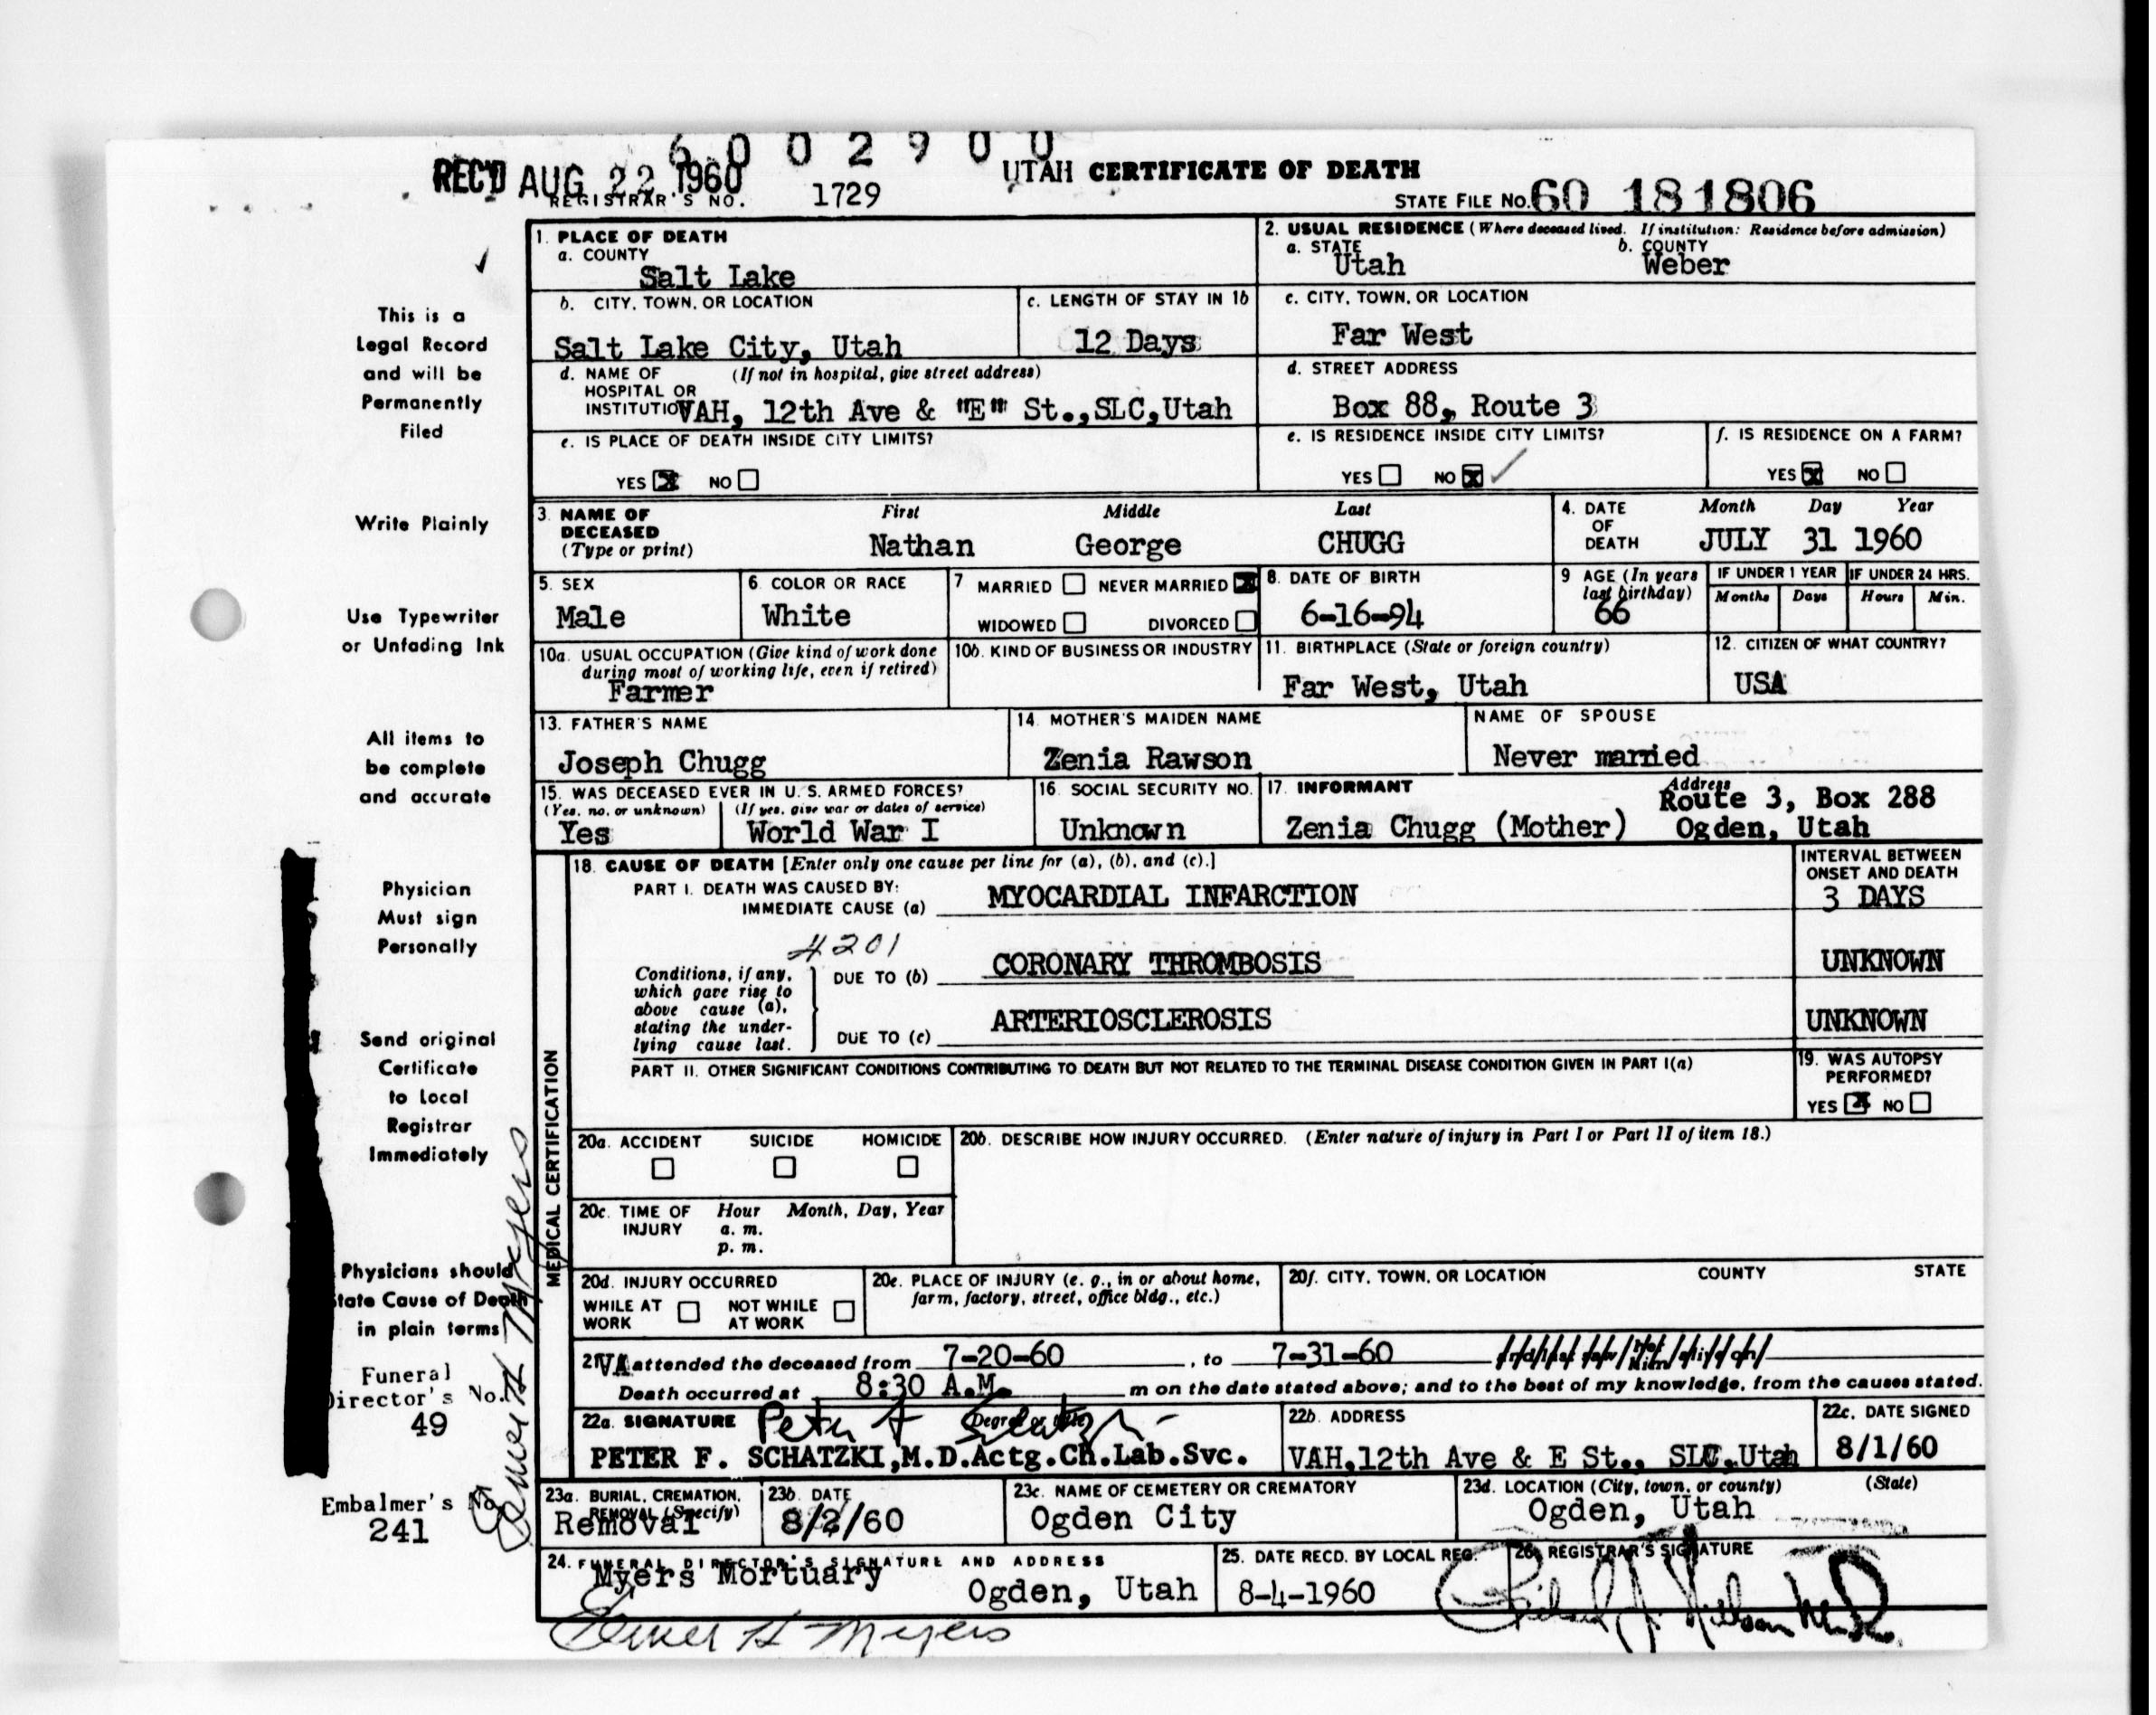 6002900
REC'D AUG 22 1960
REGISTRAR'S NO. 1729
UTAH CERTIFICATE OF DEATH
STATE FILE NO. 60 181806
This is a
Legal Record
and will be
Permanently
Filed
Write Plainly
Use Typewriter
or Unfading Ink
All items to
be complete
and accurate
Physician
Must sign
Personally
Send original
Certificate
to Local
Registrar
Immediately
Physicians should
State Cause of Death
in plain terms
Funeral
Director's No.
49
Embalmer's No.
241
Elmer H Myers
1. PLACE OF DEATH
a. COUNTY
Salt Lake
2. USUAL RESIDENCE (Where deceased lived. If institution: Residence before admission)
a. STATE Utah b. COUNTY Weber
b. CITY, TOWN, OR LOCATION
Salt Lake City, Utah
c. LENGTH OF STAY IN 1b
12 Days
c. CITY, TOWN, OR LOCATION
Far West
d. NAME OF (If not in hospital, give street address)
HOSPITAL OR
INSTITUTION VAH, 12th Ave & "E" St.,SLC,Utah
d. STREET ADDRESS
Box 88, Route 3
e. IS PLACE OF DEATH INSIDE CITY LIMITS?
YES X NO
e. IS RESIDENCE INSIDE CITY LIMITS?
YES NO X
f. IS RESIDENCE ON A FARM?
YES X NO
3. NAME OF First Middle Last
DECEASED
(Type or print) Nathan George CHUGG
4. DATE Month Day Year
OF
DEATH JULY 31 1960
5. SEX
Male
6. COLOR OR RACE
White
7 MARRIED NEVER MARRIED X
WIDOWED DIVORCED
8. DATE OF BIRTH
6-16-94
9 AGE (In years
last birthday)
66
IF UNDER 1 YEAR
Months Days
IF UNDER 24 HRS.
Hours Min.
10a. USUAL OCCUPATION (Give kind of work done
during most of working life, even if retired)
Farmer
10b. KIND OF BUSINESS OR INDUSTRY
11. BIRTHPLACE (State or foreign country)
Far West, Utah
12. CITIZEN OF WHAT COUNTRY?
USA
13. FATHER'S NAME
Joseph Chugg
14. MOTHER'S MAIDEN NAME
Zenia Rawson
NAME OF SPOUSE
Never married
15. WAS DECEASED EVER IN U. S. ARMED FORCES?
(Yes, no, or unknown) (If yes, give war or dates of service)
Yes World War I
16. SOCIAL SECURITY NO.
Unknown
17. INFORMANT Address
Route 3, Box 288
Zenia Chugg (Mother) Ogden, Utah
MEDICAL CERTIFICATION
18. CAUSE OF DEATH [Enter only one cause per line for (a), (b), and (c).]
INTERVAL BETWEEN
ONSET AND DEATH
PART I. DEATH WAS CAUSED BY:
IMMEDIATE CAUSE (a) MYOCARDIAL INFARCTION 3 DAYS
4201
Conditions, if any,
which gave rise to
above cause (a),
stating the under-
lying cause last.
DUE TO (b) CORONARY THROMBOSIS UNKNOWN
DUE TO (c) ARTERIOSCLEROSIS UNKNOWN
PART II. OTHER SIGNIFICANT CONDITIONS CONTRIBUTING TO DEATH BUT NOT RELATED TO THE TERMINAL DISEASE CONDITION GIVEN IN PART I(a)
19. WAS AUTOPSY
PERFORMED?
YES X NO
20a. ACCIDENT SUICIDE HOMICIDE
20b. DESCRIBE HOW INJURY OCCURRED. (Enter nature of injury in Part I or Part II of item 18.)
20c. TIME OF Hour Month, Day, Year
INJURY a. m.
p. m.
20d. INJURY OCCURRED
WHILE AT WORK NOT WHILE AT WORK
20e. PLACE OF INJURY (e. g., in or about home,
farm, factory, street, office bldg., etc.)
20f. CITY, TOWN, OR LOCATION COUNTY STATE
21. VA attended the deceased from 7-20-60, to 7-31-60
Death occurred at 8:30 A.M. m on the date stated above; and to the best of my knowledge, from the causes stated.
22a. SIGNATURE Peter F Schatzki (Degree or title)
PETER F. SCHATZKI,M.D.Actg.Ch.Lab.Svc.
22b. ADDRESS
VAH,12th Ave & E St., SLC,Utah
22c. DATE SIGNED
8/1/60
23a. BURIAL, CREMATION,
REMOVAL (Specify)
Removal
23b. DATE
8/2/60
23c. NAME OF CEMETERY OR CREMATORY
Ogden City
23d. LOCATION (City, town, or county) (State)
Ogden, Utah
24. FUNERAL DIRECTOR'S SIGNATURE AND ADDRESS
Myers Mortuary Ogden, Utah
Elmer H Myers
25. DATE RECD. BY LOCAL REG.
8-4-1960
26. REGISTRAR'S SIGNATURE